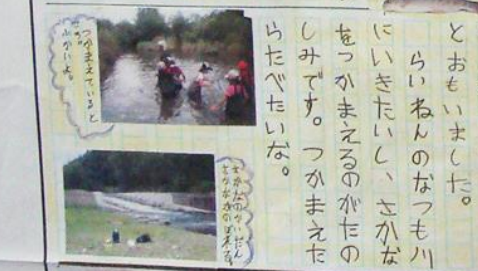 とおもいました。
らいねんのなつも川
にいきたいし、さかな
をつかまえるのがたの
しみです。つかまえた
らたべたいな。
つかまえているところ。
ふかいよ。
さかなの